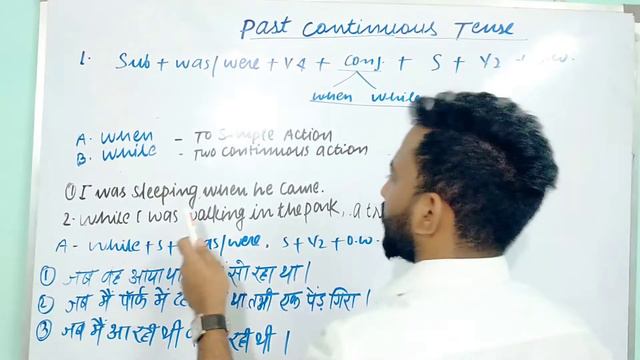 Past Continuous Tense
1. Sub + was/were + V4 + Conj + S + V2 + o.w.
when while
A. when - To Simple Action
B. while - Two continuous action
① I was sleeping when he came.
2. while I was walking in the park, a t
A - while + S + was/were, S + V2 + O.w.
① जब वह आया था सो रहा था।
② जब मैं पार्क में था तभी एक पेड़ गिरा।
③ जब मैं आ रही थी रही थी।